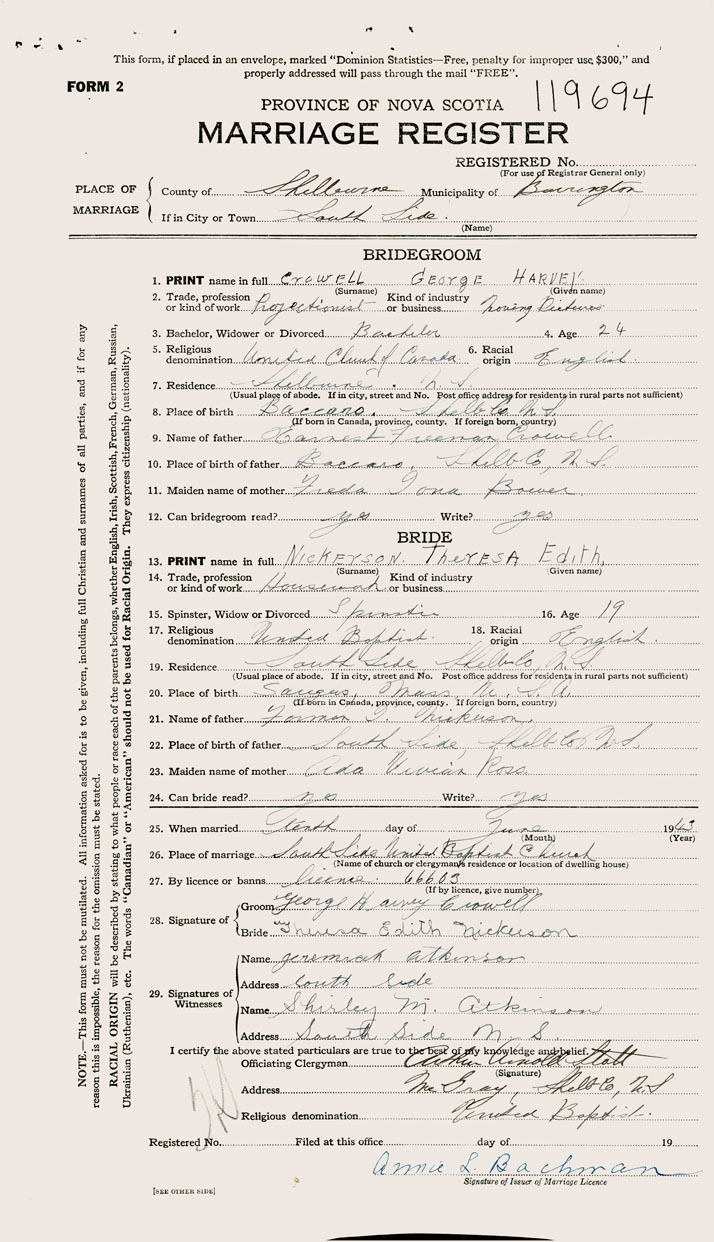 This form, if placed in an envelope, marked "Dominion Statistics—Free, penalty for improper use $300," and
properly addressed will pass through the mail "FREE".
FORM 2
119694
PROVINCE OF NOVA SCOTIA
MARRIAGE REGISTER
REGISTERED No.
(For use of Registrar General only)
PLACE OF MARRIAGE
County of Shelburne Municipality of Barrington
If in City or Town South Side.
(Name)
BRIDEGROOM
1. PRINT name in full CROWELL GEORGE HARVEY
(Surname) (Given name)
2. Trade, profession or kind of work Projectionist Kind of industry or business Moving Pictures
3. Bachelor, Widower or Divorced Bachelor 4. Age 24
5. Religious denomination United Church of Canada 6. Racial origin English.
7. Residence Shelburne. N.S.
(Usual place of abode. If in city, street and No. Post office address for residents in rural parts not sufficient)
8. Place of birth Baccaro, Shelb Co N.S.
(If born in Canada, province, county. If foreign born, country)
9. Name of father Earnest Freeman Crowell
10. Place of birth of father Baccaro, Shelb Co, N.S.
11. Maiden name of mother Freda Iona Bower
12. Can bridegroom read? yes Write? yes
BRIDE
13. PRINT name in full NICKERSON. THERESA Edith,
(Surname) (Given name)
14. Trade, profession or kind of work Housework Kind of industry or business
15. Spinster, Widow or Divorced Spinster 16. Age 19
17. Religious denomination United Baptist. 18. Racial origin English.
19. Residence South Side Shelb Co, N.S.
(Usual place of abode. If in city, street and No. Post office address for residents in rural parts not sufficient)
20. Place of birth Saugus, Mass U.S.A.
(If born in Canada, province, county. If foreign born, country)
21. Name of father Nickerson.
22. Place of birth of father South Side, Shelb Co N.S.
23. Maiden name of mother Ada Vivian Ross
24. Can bride read? Write? yes
25. When married Tenth day of June 1943
(Month) (Year)
26. Place of marriage South Side United Baptist Church
(Name of church or clergyman's residence or location of dwelling house)
27. By licence or banns licence 66603
(If by licence, give number)
28. Signature of
Groom George Harvey Crowell
Bride Theresa Edith Nickerson
29. Signatures of Witnesses
Name Jeremiah Atkinson
Address South Side
Name Shirley M. Atkinson
Address South Side N S.
I certify the above stated particulars are true to the best of my knowledge and belief.
Officiating Clergyman Arthur Arnold
(Signature)
Address McGray, Shelb Co, N.S
Religious denomination United Baptist.
Registered No. Filed at this office day of 19
Annie L. Bachman
Signature of Issuer of Marriage Licence
[SEE OTHER SIDE]
NOTE.—This form must not be mutilated. All information asked for is to be given, including full Christian and surnames of all parties, and if for any
reason this is impossible, the reason for the omission must be stated.
RACIAL ORIGIN will be described by stating to what people or race each of the parents belongs, whether English, Irish, Scottish, French, German, Russian,
Ukrainian (Ruthenian), etc. The words "Canadian" or "American" should not be used for Racial Origin. They express citizenship (nationality).